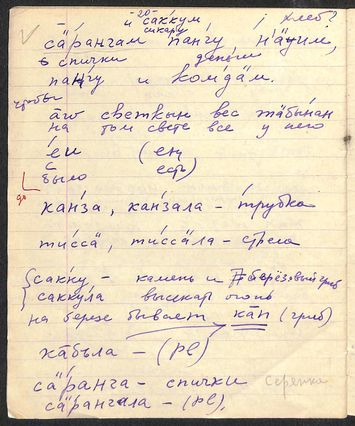 -го-
и саккум хлеб?
сикару
сӓрангам пангу нӓјим,
спички деньги
пангу и комдӓм.
чтобы
āɣо светкын вес тӓбынан
на том свете все у него
éи (ең
было есть)
до
канза, канзала – трубка
тисса, тиссӓла – стрела
сакку – камень и берёзовый гриб
саккула высекать огонь
на березе бывает кāп (гриб)
хāбъла – (pl)
сӓранга – спички серенка
сӓрангала – (pl).